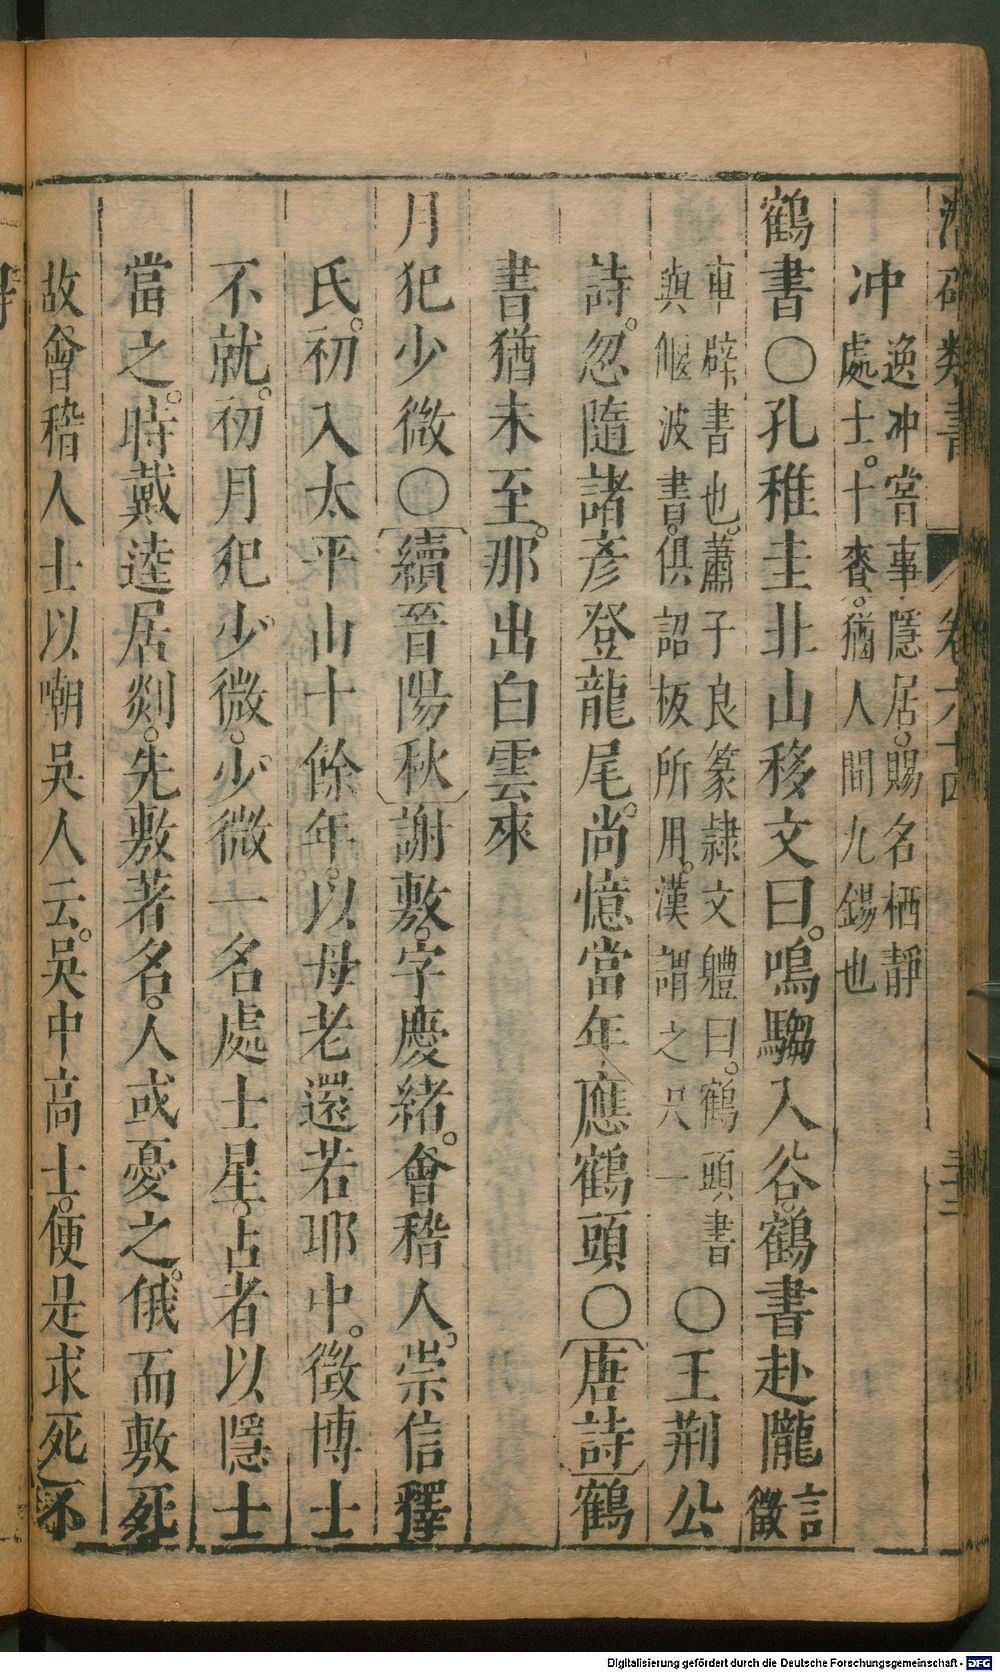 潛確類書 卷六十四 三三
冲 逸冲嘗事隱居。賜名栖靜
處士。十賚。猶人間九錫也
鶴書〇孔稚圭北山移文曰。鳴騶入谷。鶴書赴隴 言徵
車辟書也。蕭子良篆隸文軆曰。鶴頭書
與偃波書。俱詔板所用。漢謂之尺一 〇王荆公
詩。忽隨諸彥登龍尾。尚憶當年應鶴頭〇唐詩鶴
書猶未至。那出白雲來
月犯少微〇續晉陽秋謝敷。字慶緒。會稽人。崇信釋
氏。初入太平山十餘年。以母老還若耶中。徵博士
不就。初月犯少微。少微一名處士星。占者以隱士
當之。時戴逵居剡。先敷著名。人或憂之。俄而敷死
故會稽人士以嘲吳人云。吳中高士。便是求死不
Digitalisierung gefördert durch die Deutsche Forschungsgemeinschaft - DFG